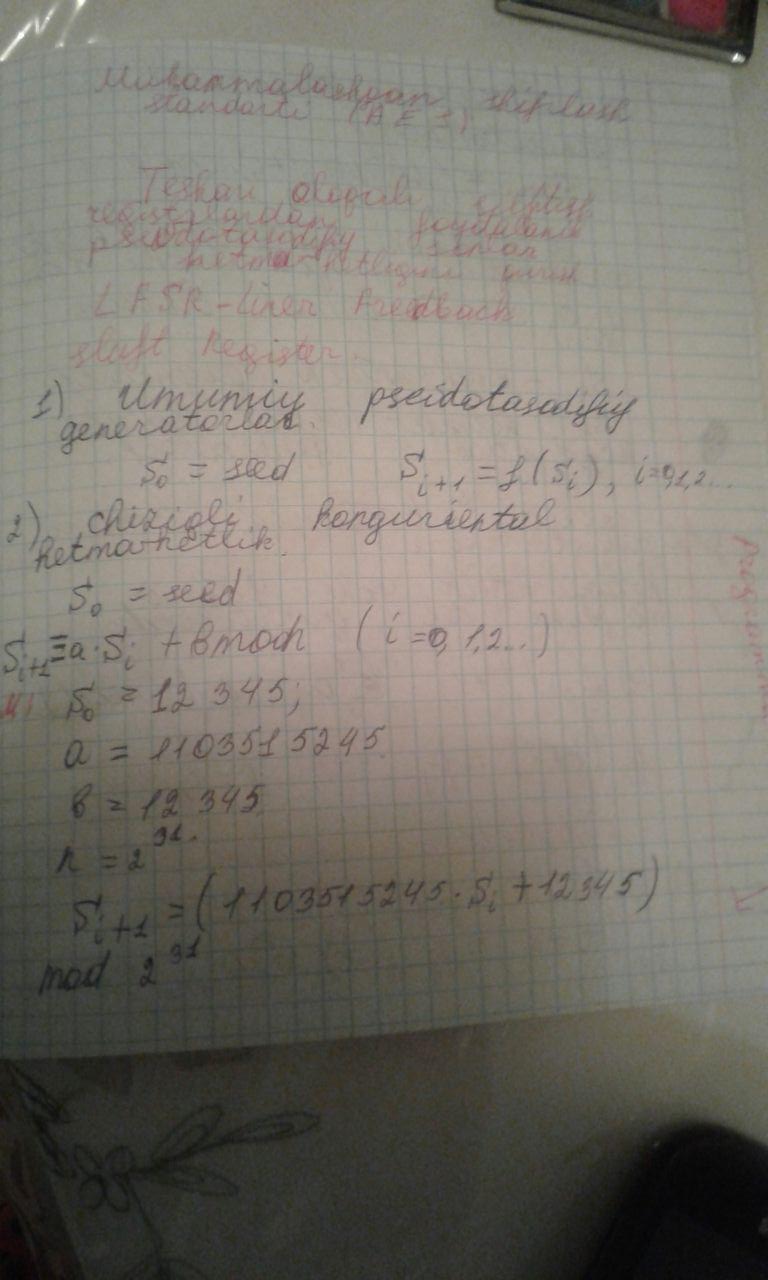 Mukammallashgan shiflash
standarti (AES)
Teskari aloqali siljitish
registalardan foydalanib
pseidotasodifiy sonlar
ketma-ketligini qurish
LFSR-liner Freedback
shaft Register.
1) Umumiy pseidotasodifiy
generatorlar.
S₀ = seed S_{i+1} = f(S_i), i=0,1,2...
2) chiziqli konguriental
ketma-ketlik.
S₀ = seed
S_{i+1} ≡ a·S_i + b mod n (i=0,1,2...)
M: S₀ = 12 345;
a = 1103515245
b = 12 345
n = 2³¹.
S_{i+1} = (1103515245·S_i + 12345)
mod 2³¹